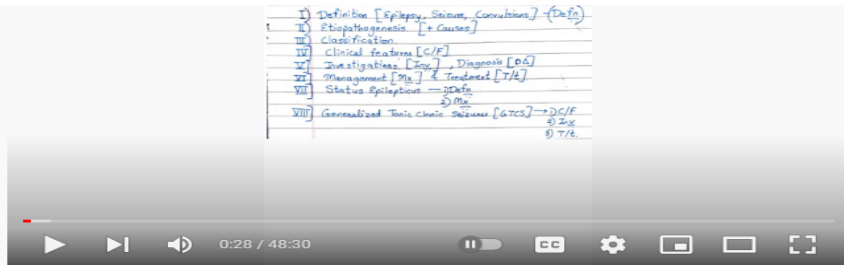 I] Definition [Epilepsy, Seizure, Convulsions] - (Defn)
II] Etiopathogenesis [+ Causes]
III] Classification.
IV] Clinical features [C/F]
V] Investigations [Inv], Diagnosis [DΔ]
VI] Management [Mx] & Treatment [T/t]
VII] Status Epilepticus — 1) Defn
2) Mx
VIII] Generalized Tonic Clonic Seizures [GTCS] → 1) C/F
2) Inv
3) T/t.
0:28 / 48:30
CC